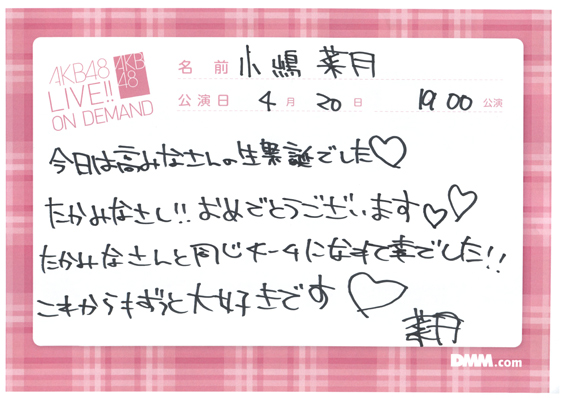 AKB48
LIVE!!
ON DEMAND
AKB
48
名 前 小嶋 菜月
公演日 4月 20日 19:00 公演
今日は高みなさんの生誕でした♡
たかみなさん!!おめでとうございます♡♡
たかみなさんと同じチームになれて幸でした!!
これからもずっと大好きです♡
菜月
DMM.com